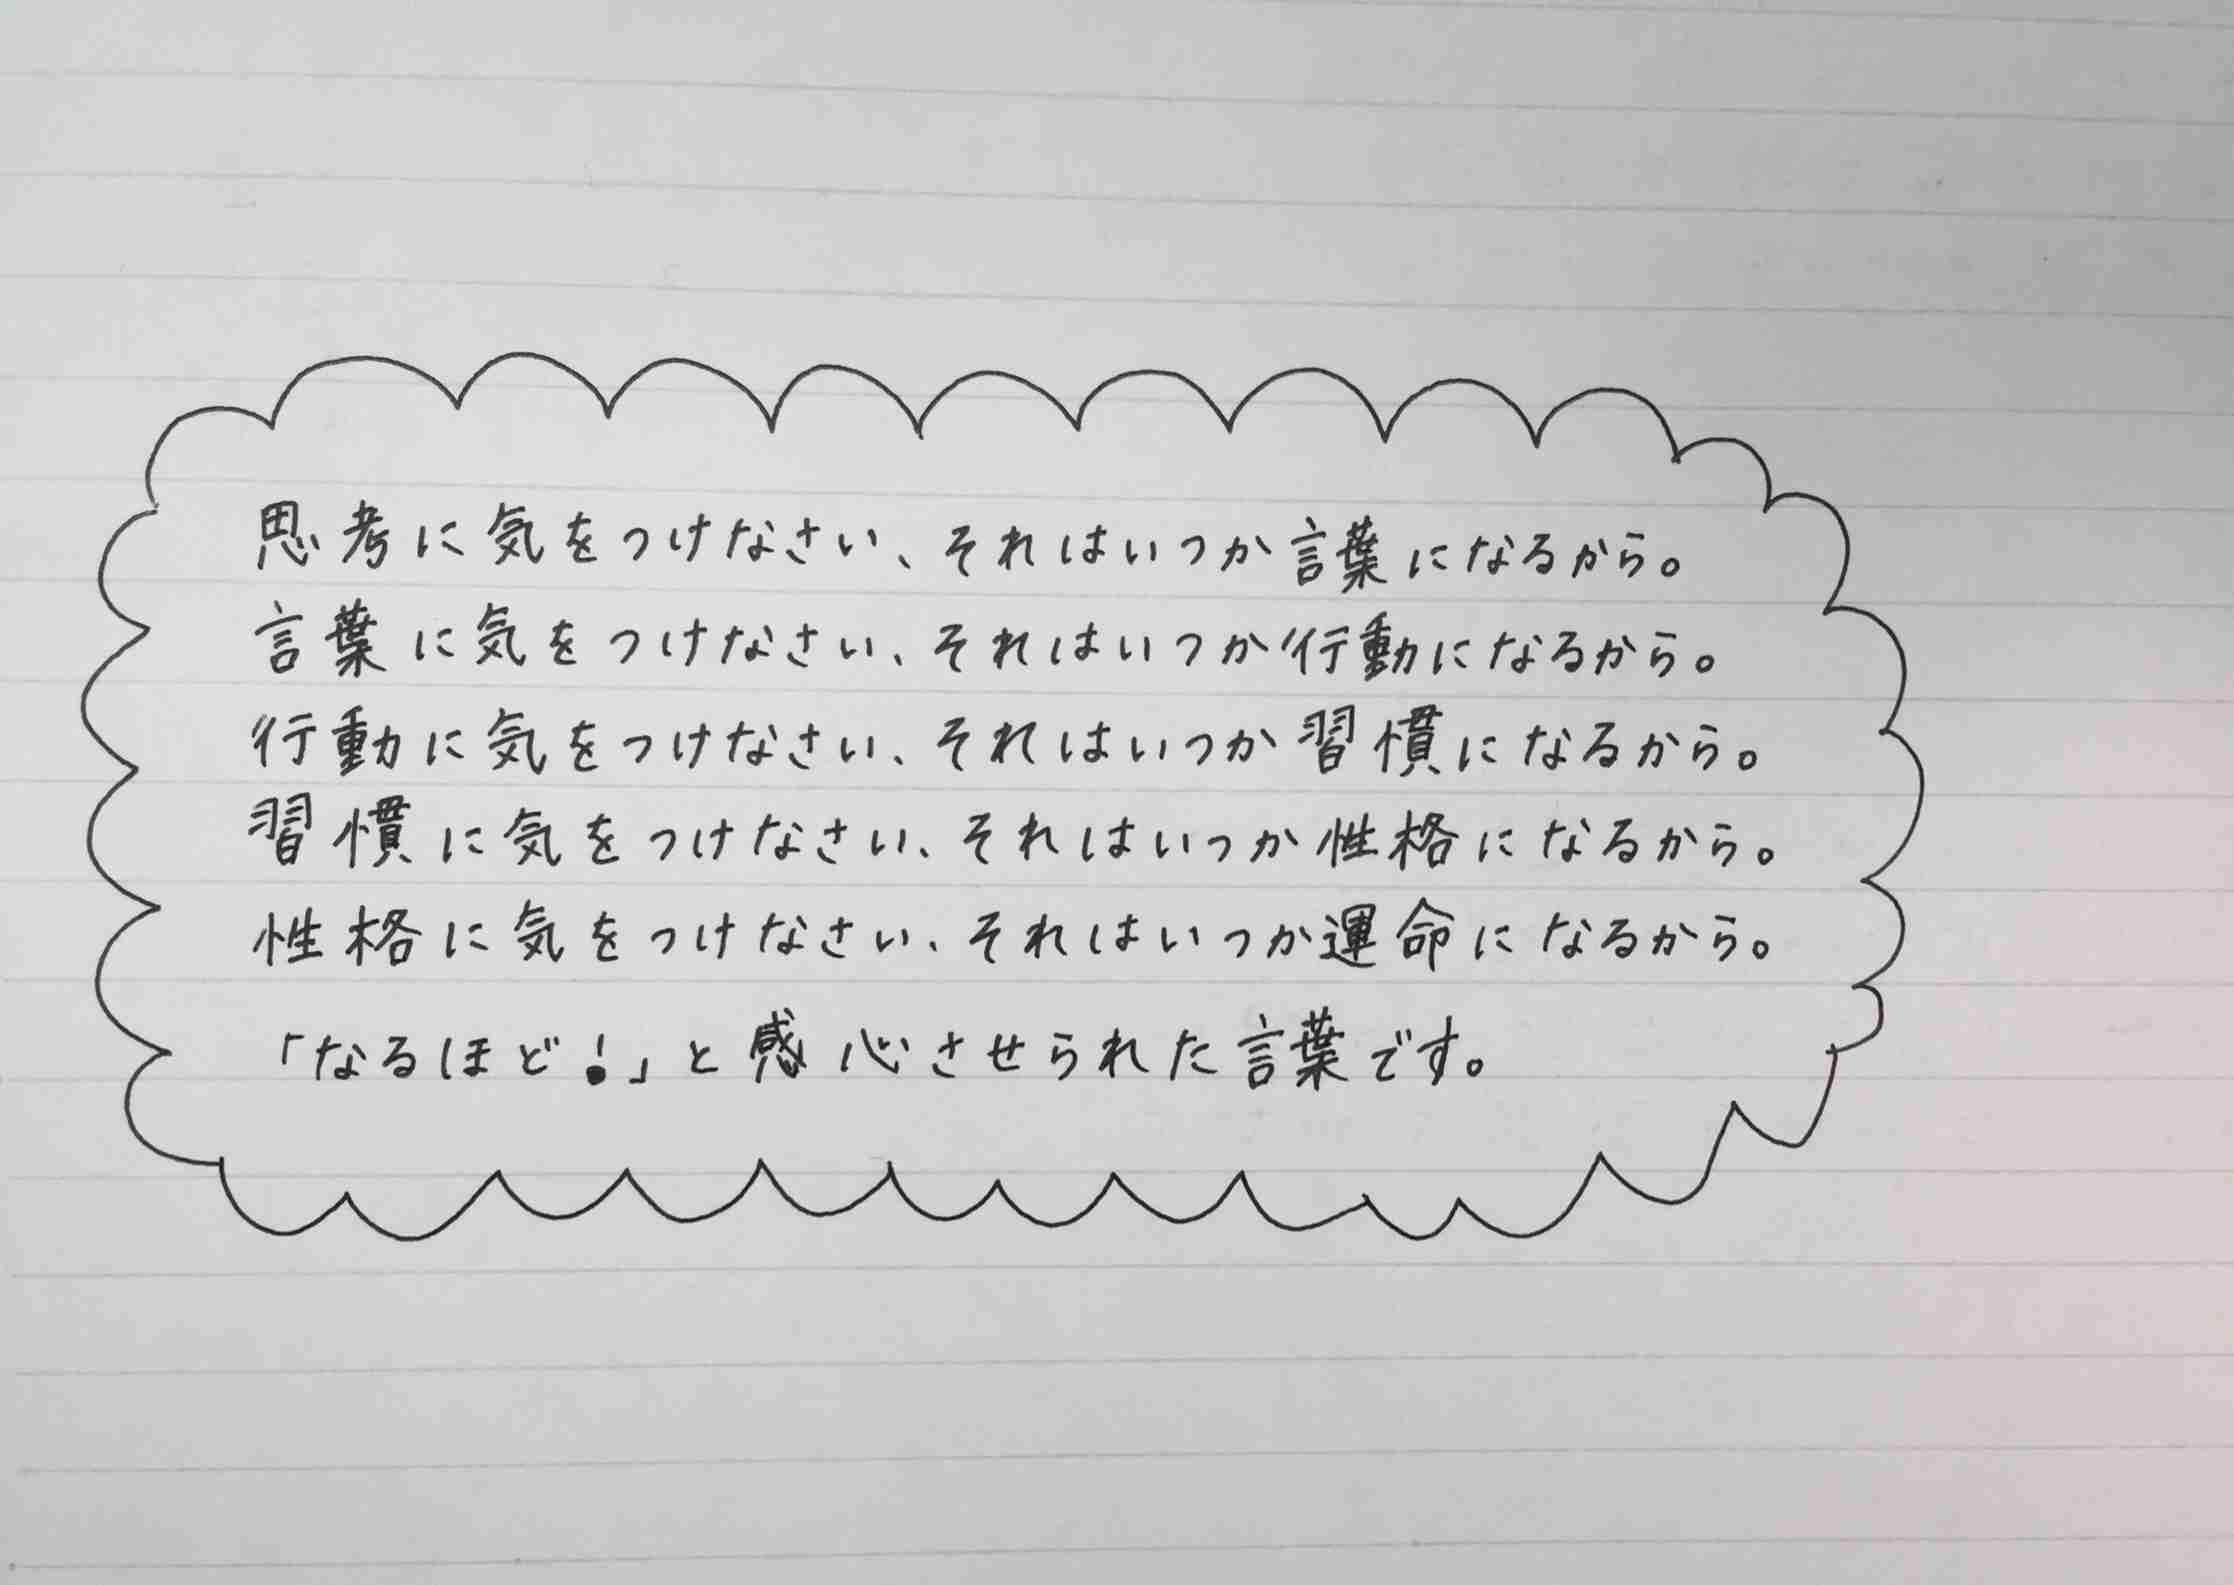 思考に気をつけなさい、それはいつか言葉になるから。
言葉に気をつけなさい、それはいつか行動になるから。
行動に気をつけなさい、それはいつか習慣になるから。
習慣に気をつけなさい、それはいつか性格になるから。
性格に気をつけなさい、それはいつか運命になるから。
「なるほど!」と感心させられた言葉です。